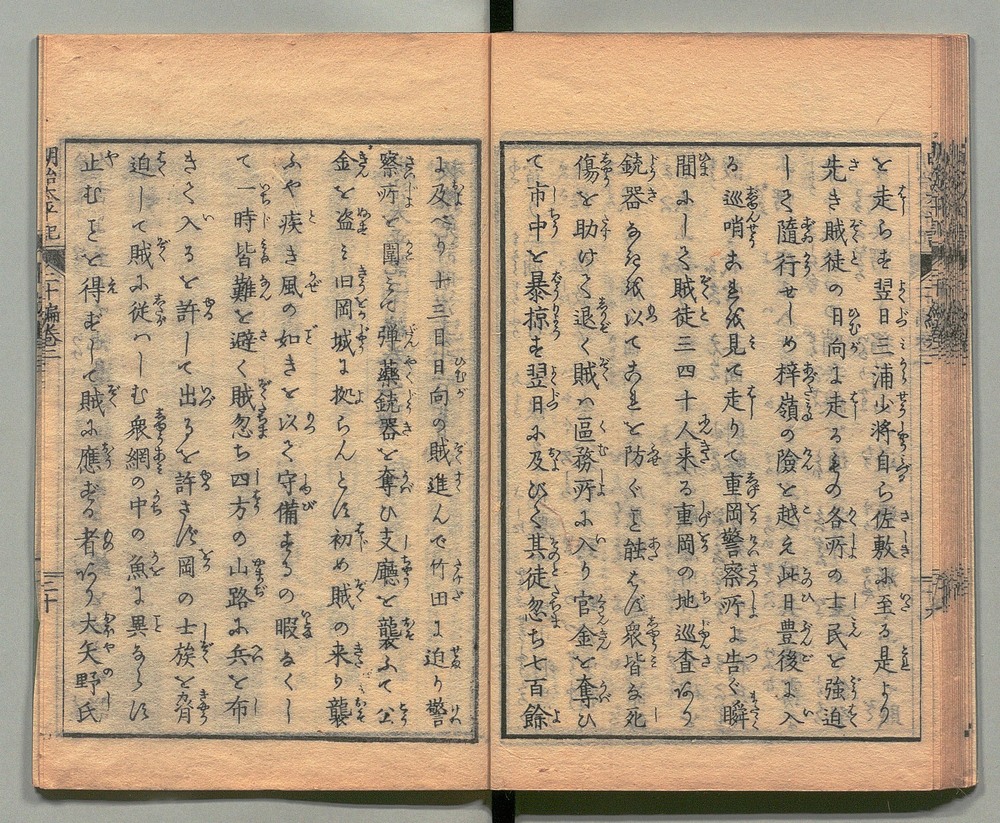 と走らす翌日三浦少将自ら佐敷に至る是より
先き賊徒の日向に走るもの各所の士民を強迫
して随行せしめ梓嶺の險を越え此日豊後に入
る巡哨これを見て走りて重岡警察所に告ぐ瞬
間にして賊徒三四十人来る重岡の地巡査
銃器なきを以てこれを防ぐこと能はず衆皆な死
傷を助けて退く賊ハ區務所に入り官金を奪ひ
て市中を暴掠す翌日に及びて其徒忽ち七百餘
に及べり十三日日向の賊進んで竹田に迫り警
察所を圍みて弾藥銃器を奪ひ支廳を襲ふて公
金を盗ミ旧岡城に拠らんとす初め賊の来り襲
ふや疾き風の如きを以て守備するの暇なくし
て一時皆難を避く賊忽ち四方の山路に兵を布
きて入るを許して出るを許さず岡の士族を脅
迫して賊に従ハしむ衆網の中の魚に異ならず
止むことを得ずして賊に應ずる者あり大矢野氏
明治太平記
二十編巻二
二十